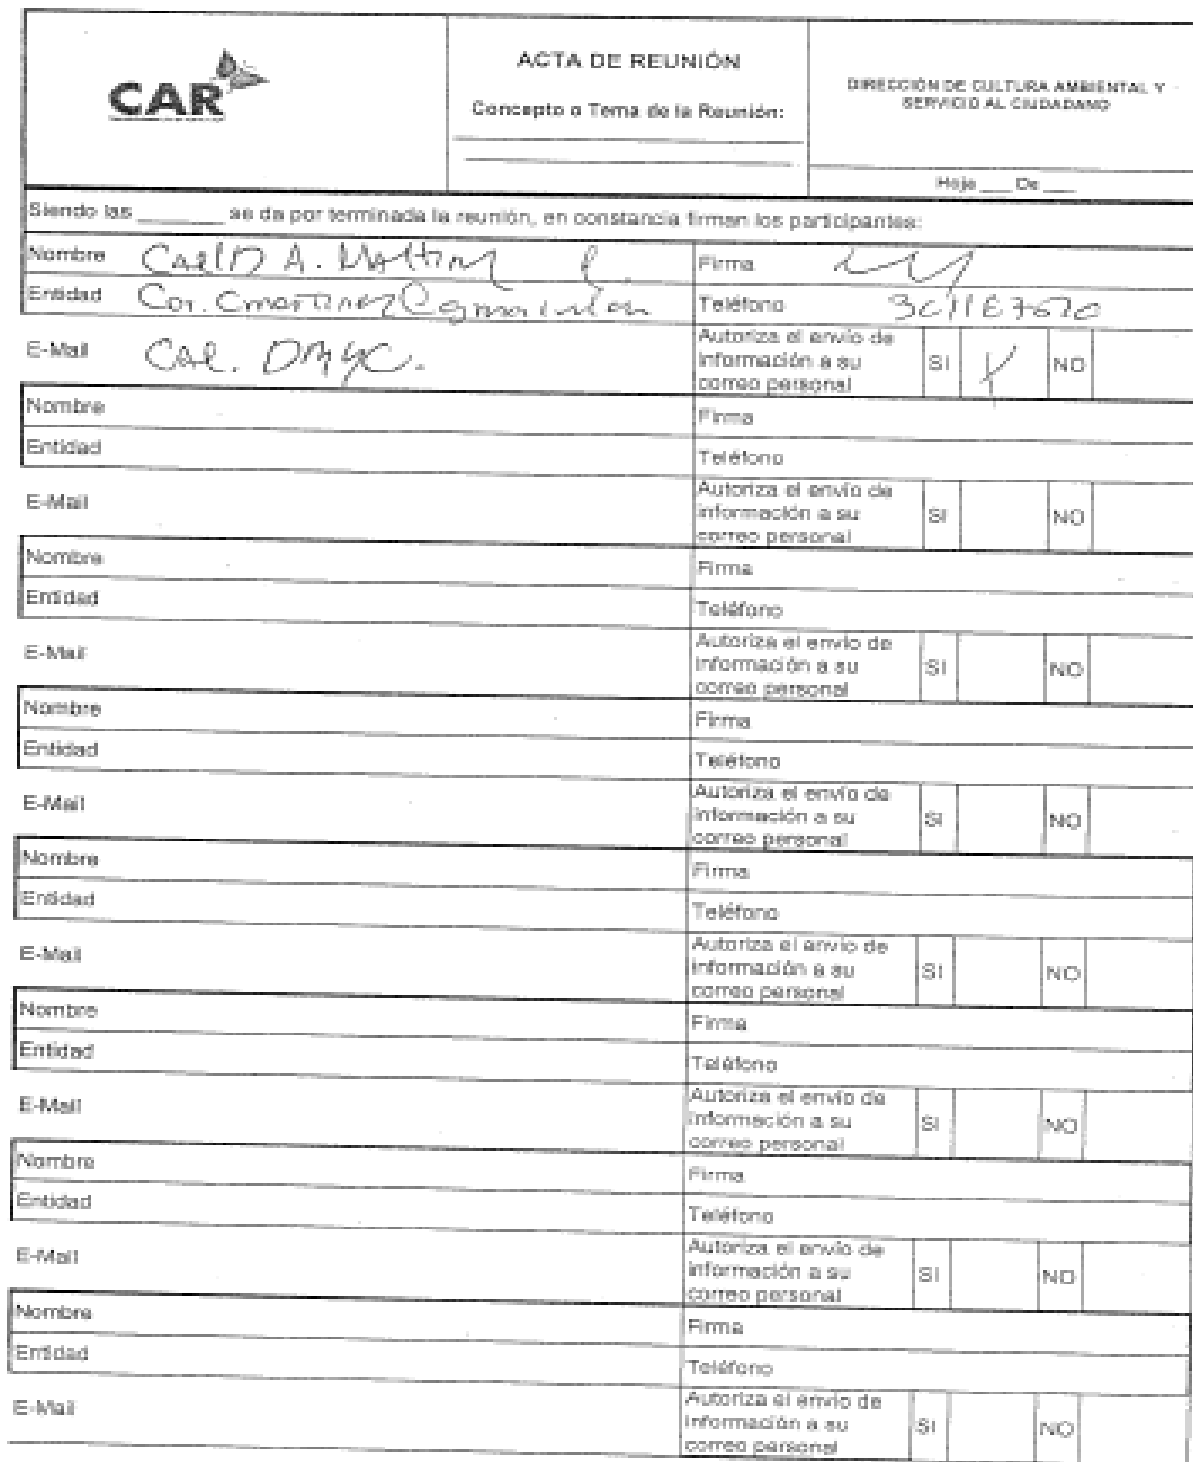 CAR
ACTA DE REUNIÓN
Concepto o Tema de la Reunión:
DIRECCIÓN DE CULTURA AMBIENTAL Y
SERVICIO AL CIUDADANO
Hoja ___ De ___
Siendo las _______ se da por terminada la reunión, en constancia firman los participantes:
Nombre A.
Firma
Entidad
Teléfono
E-Mail
Autoriza el envío de
información a su
correo personal
SI X NO
Nombre
Firma
Entidad
Teléfono
E-Mail
Autoriza el envío de
información a su
correo personal
SI NO
Nombre
Firma
Entidad
Teléfono
E-Mail
Autoriza el envío de
información a su
correo personal
SI NO
Nombre
Firma
Entidad
Teléfono
E-Mail
Autoriza el envío de
información a su
correo personal
SI NO
Nombre
Firma
Entidad
Teléfono
E-Mail
Autoriza el envío de
información a su
correo personal
SI NO
Nombre
Firma
Entidad
Teléfono
E-Mail
Autoriza el envío de
información a su
correo personal
SI NO
Nombre
Firma
Entidad
Teléfono
E-Mail
Autoriza el envío de
información a su
correo personal
SI NO
Nombre
Firma
Entidad
Teléfono
E-Mail
Autoriza el envío de
información a su
correo personal
SI NO